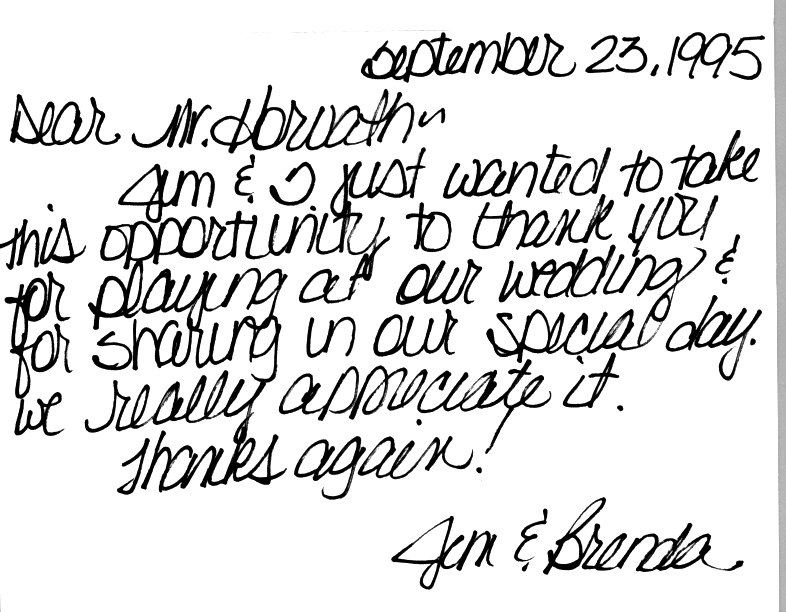 September 23, 1995
Dear Mr. Horvath~
Jim & I just wanted to take
this opportunity to thank you
for playing at our wedding &
for sharing in our special day.
We really appreciate it.
Thanks again!
Jim & Brenda